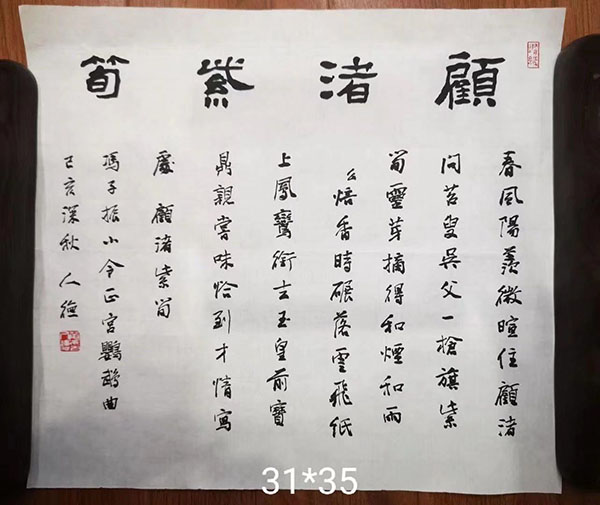 顧渚紫筍
春風陽羨微暄住顧渚
问苕叟吳父一槍旗紫
筍靈芽摘得和煙和雨
么焙香時碾落雲飛紙
上鳳鸞銜去玉皇前寶
鼎親嘗味恰到才情寫
處 顧渚紫筍
馮子振小令正宮鸚鵡曲
己亥深秋人德
31*35